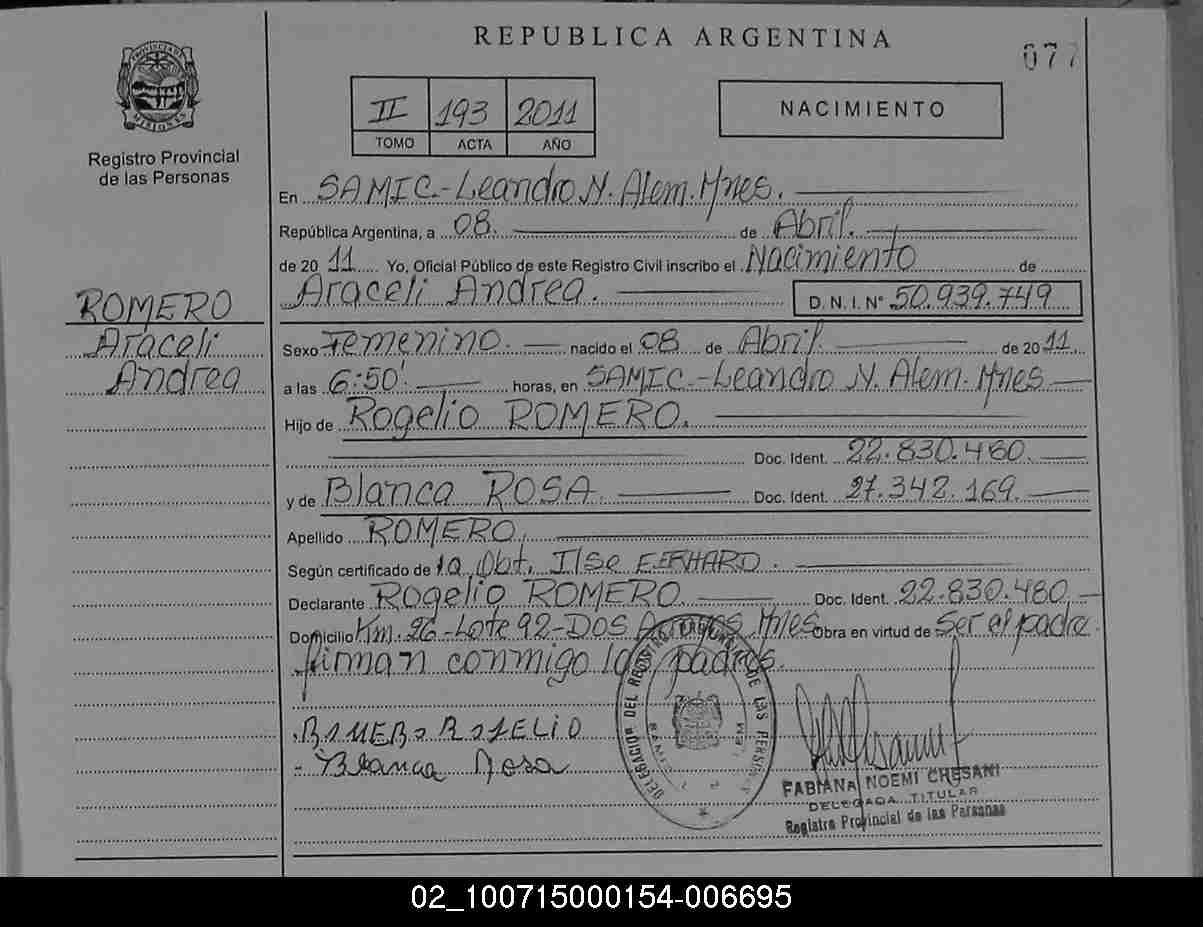 REPUBLICA ARGENTINA
077
PROVINCIA DE MISIONES
Registro Provincial
de las Personas
II 193 2011
TOMO ACTA AÑO
NACIMIENTO
En SAMIC.-Leandro N. Alem. Mnes.
República Argentina, a 08. de Abril.
de 2011 Yo, Oficial Público de este Registro Civil inscribo el Nacimiento de
Araceli Andrea. D.N.I. N° 50.939.749
ROMERO
Araceli
Andrea
Sexo Femenino. nacido el 08 de Abril. de 2011.
a las 6:50' horas, en SAMIC.-Leandro N. Alem. Mnes
Hijo de Rogelio ROMERO.
Doc. Ident. 22.830.480.
y de Blanca ROSA Doc. Ident. 27.342.169.
Apellido ROMERO.
Según certificado de la Obt. Ilse
Declarante Rogelio ROMERO. Doc. Ident. 22.830.480.
Domicilio Km. 26-Lote 92-DOS Arroyos Mnes Obra en virtud de Ser el padre.
firman conmigo los padres.
ROMERO ROGELIO
Blanca Rosa
DELEGACION DEL REGISTRO PROVINCIAL DE LAS PERSONAS
FABIANA NOEMI CHESANI
DELEGADA TITULAR
Registro Provincial de las Personas
02_100715000154-006695